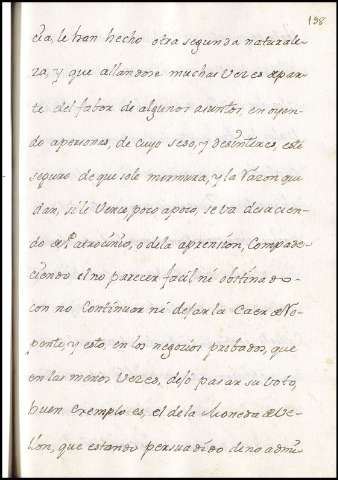 138
cia, le han hecho otra segunda naturale-
za, y que allandose muchas Vezes de par-
te del fabor de algunos asuntos, en oyen-
do apersonas, de cuyo seso, y desinteres, esté
seguro de que solo mormura, y la razon que
dan, si le Vence, poco apoco, se va desacien-
do de Patrocinio, o de la aprension, Compade-
ciendo el no parecer facil ni obstinado-
con no Continuar ni dejarla Caer de Ro-
pente, y esto, en los negocios probados, que
en las menos Vezes, dejó pasar su voto,
buen exemplo es, el de la Moneda de Ve-
llon, que estando persuadido de no admi-